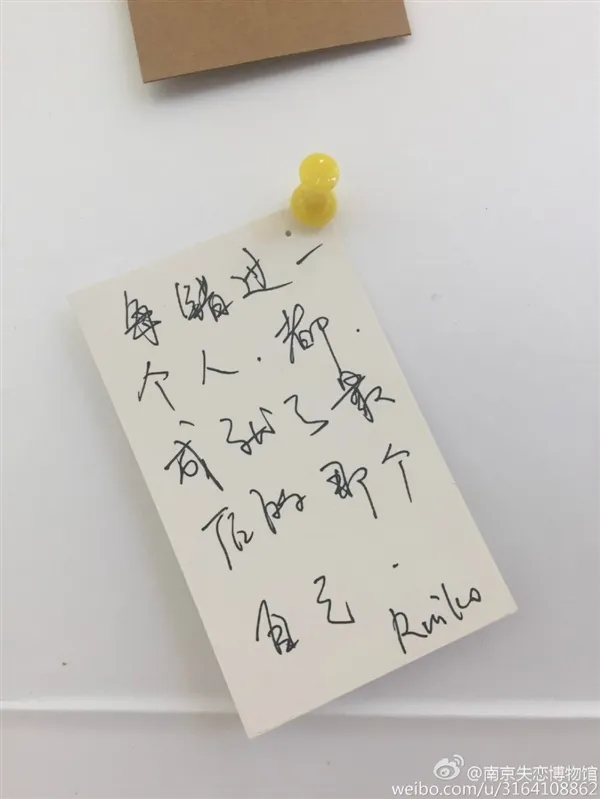 每错过一
个人.都.
成就了最
后的那个
自己.
Ruiko
@南京失恋博物馆
weibo.com/u/3164108862